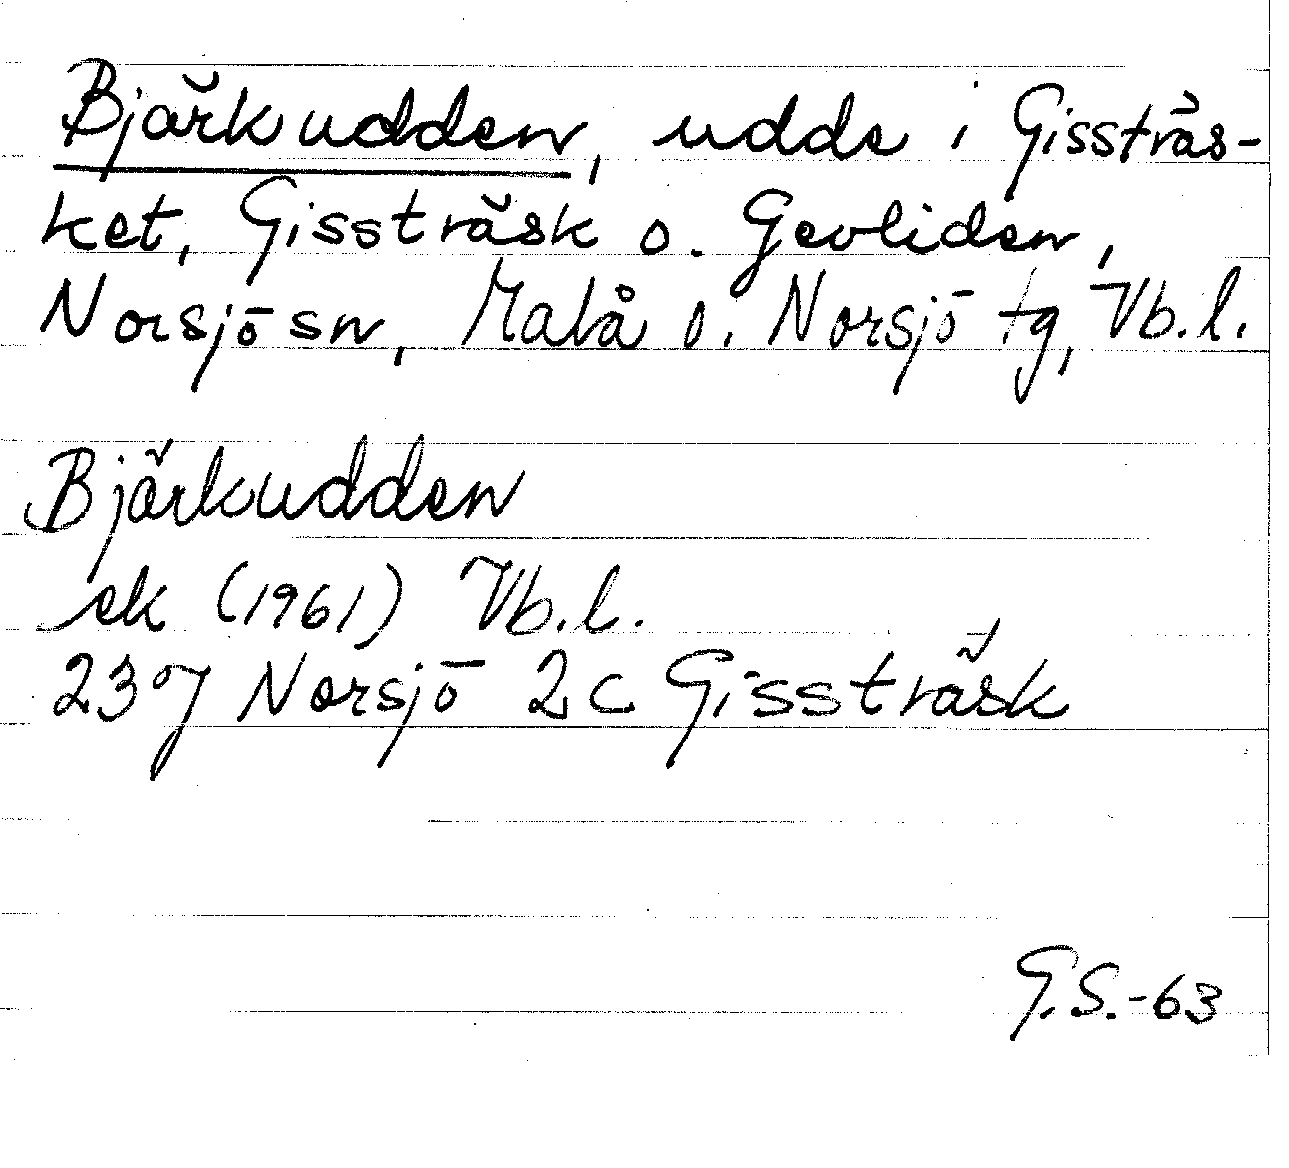 Bjärkudden, udde i Gissträs-
ket, Gissträsk o. Gevliden,
Norsjö sn, Malå o. Norsjö tg, Vb.l.
Bjärkudden
ek (1961) Vb.l.
23 J Norsjö 2 c Gissträsk
G.S.-63